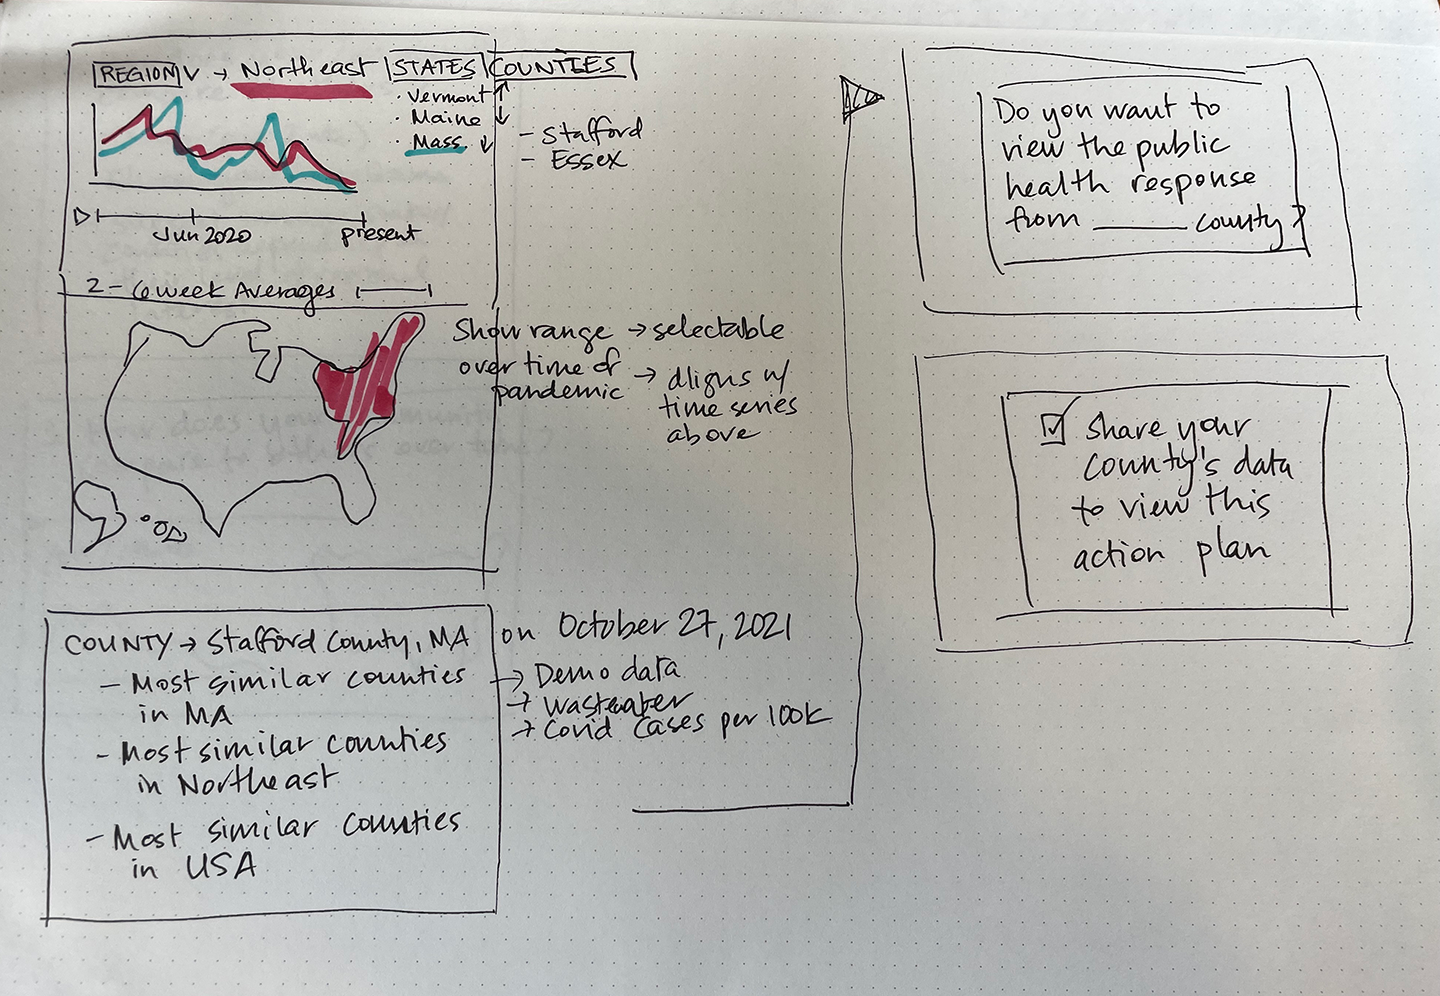 REGION V → Northeast | STATES | COUNTIES
· Vermont
· Maine
· Mass.
- Stafford
- Essex
Jun 2020
present
2 - 6 week Averages
Show range → selectable
over time of
pandemic → aligns w/
time series
above
COUNTY → Stafford County, MA on October 27, 2021
- Most similar counties
in MA
- Most similar counties
in Northeast
- Most similar counties
in USA
→ Demo data
→ Wastewater
→ Covid Cases per 100k
Do you want to
view the public
health response
from ______ county?
☑ Share your
county's data
to view this
action plan